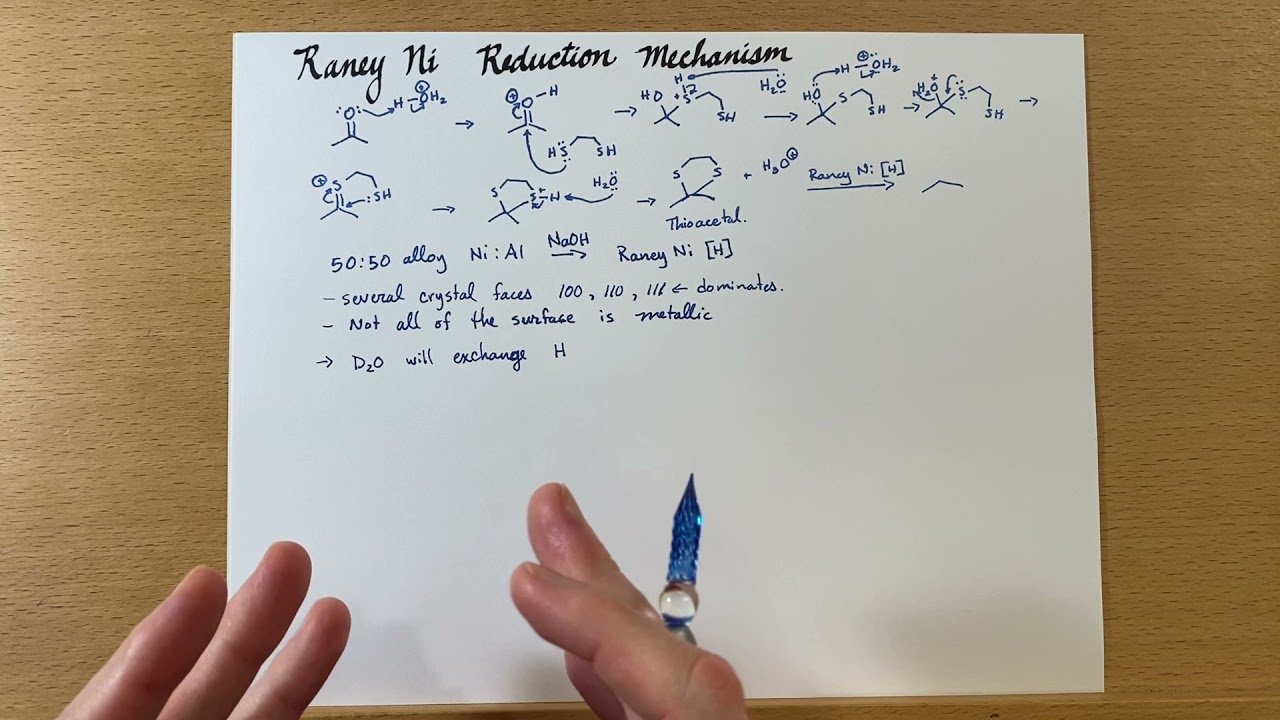 Raney Ni Reduction Mechanism
:O: H-OH₂ ⊕ → ⊕ O-H HS SH → HO H +S SH H₂O → HO S SH H-OH₂ ⊕ → H₂O+ S SH →
⊕ S :SH → S S+-H H₂O → S S + H₃O⊕ Raney Ni [H]
Thioacetal.
50:50 alloy Ni:Al NaOH → Raney Ni [H]
- several crystal faces 100, 110, 111 ← dominates.
- Not all of the surface is metallic
→ D₂O will exchange H